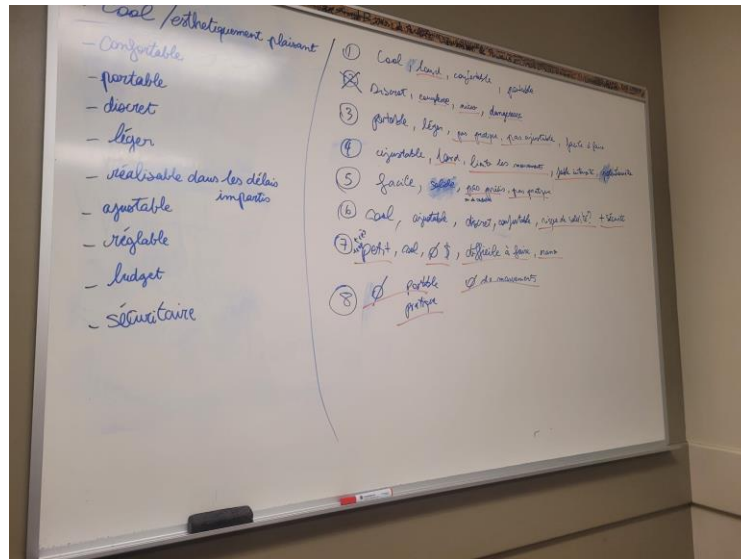 Cool / esthetiquement plaisant
- Confortable
- portable
- discret
- léger
- réalisable dans les délais
impartis
- ajustable
- réglable
- budget
- sécuritaire
① Cool, lourd, confortable, portable
② Discret, complexe, micro, dangereux
③ portable, léger, pas pratique, pas ajustable, facile à faire
④ ajustable, lourd, limite les mouvements, faible intensité
⑤ facile, solide, pas précis, pas pratique
⑥ cool, ajustable, discret, confortable, risque de solidité? + sécurité
⑦ petit, cool, Ø $, difficile à faire, nano
⑧ Ø portable Ø de mouvements
pratique